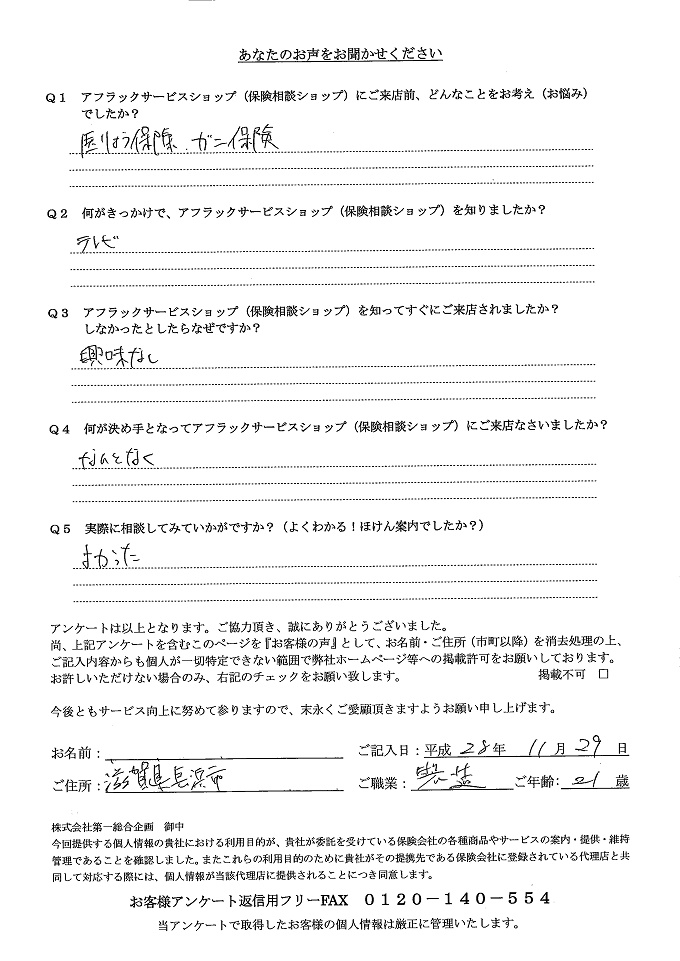 あなたのお声をお聞かせください
Q1 アフラックサービスショップ（保険相談ショップ）にご来店前、どんなことをお考え（お悩み）
でしたか？
医りょう保険 ガン保険
Q2 何がきっかけで、アフラックサービスショップ（保険相談ショップ）を知りましたか？
テレビ
Q3 アフラックサービスショップ（保険相談ショップ）を知ってすぐにご来店されましたか？
しなかったとしたらなぜですか？
興味なし
Q4 何が決め手となってアフラックサービスショップ（保険相談ショップ）にご来店なさいましたか？
なんとなく
Q5 実際に相談してみていかがですか？（よくわかる！ほけん案内でしたか？）
よかった
アンケートは以上となります。ご協力頂き、誠にありがとうございました。
尚、上記アンケートを含むこのページを『お客様の声』として、お名前・ご住所（市町以降）を消去処理の上、
ご記入内容からも個人が一切特定できない範囲で弊社ホームページ等への掲載許可をお願いしております。
お許しいただけない場合のみ、右記のチェックをお願い致します。 掲載不可 □
今後ともサービス向上に努めて参りますので、末永くご愛顧頂きますようお願い申し上げます。
お名前： ご記入日：平成 28年 11月 29日
ご住所：滋賀県長浜市 ご職業： ご年齢：21歳
株式会社第一総合企画 御中
今回提供する個人情報の貴社における利用目的が、貴社が委託を受けている保険会社の各種商品やサービスの案内・提供・維持
管理であることを確認しました。またこれらの利用目的のために貴社がその提携先である保険会社に登録されている代理店と共
同して対応する際には、個人情報が当該代理店に提供されることにつき同意します。
お客様アンケート返信用フリーFAX 0120－140－554
当アンケートで取得したお客様の個人情報は厳正に管理いたします。